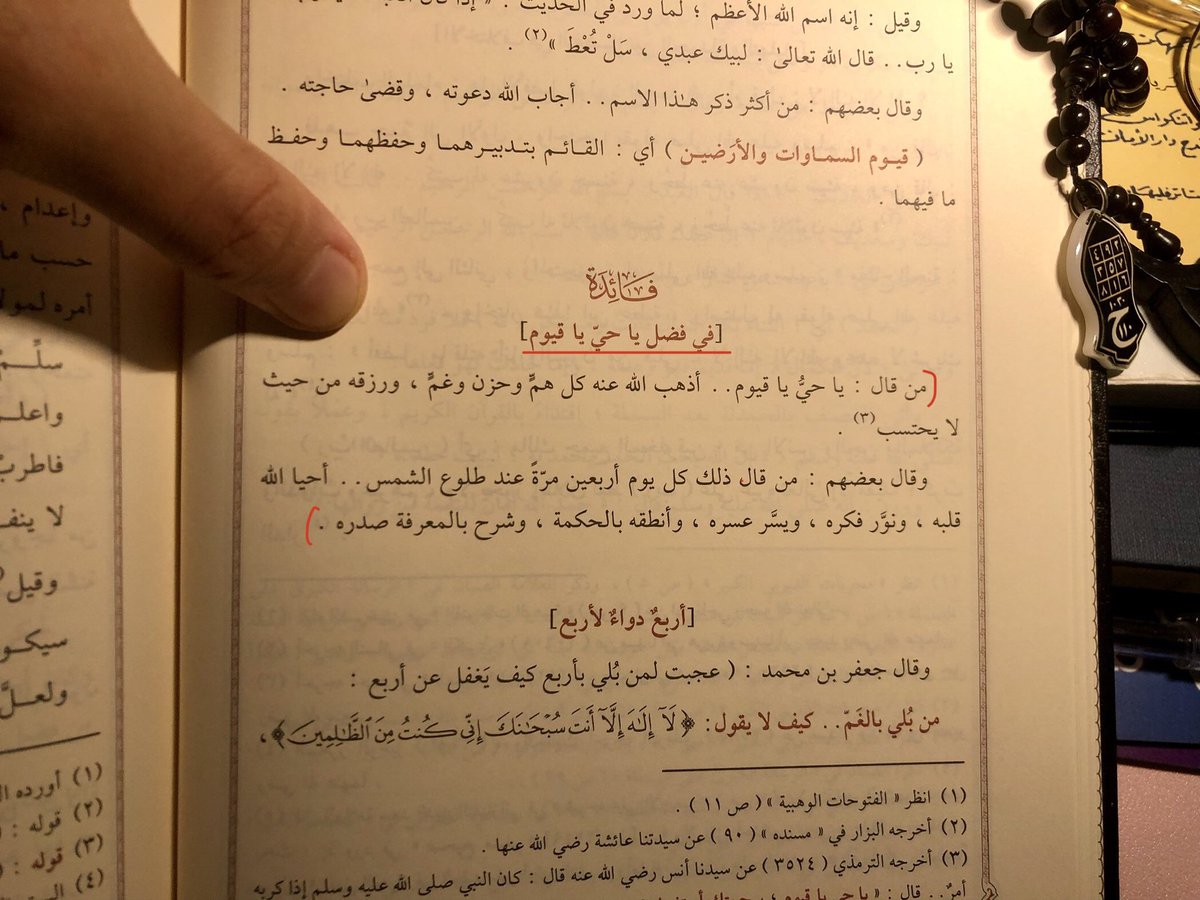 وقيل : إنه اسم الله الأعظم ؛ لما ورد في الحديث : « إذا قال
يا رب.. قال الله تعالىٰ : لبيك عبدي ، سَلْ تُعْطَ »(٢) .
وقال بعضهم : من أكثر ذكر هـٰذا الاسم.. أجاب الله دعوته ، وقضىٰ حاجته .
( قيوم السماوات والأرَضين ) أي : القائم بتدبيرهما وحفظهما وحفظ
ما فيهما .
فَائِدَة
[في فضل يا حيّ يا قيوم]
من قال : يا حيُّ يا قيوم.. أذهب الله عنه كل همٍّ وحزن وغمٍّ ، ورزقه من حيث
لا يحتسب(٣) .
وقال بعضهم : من قال ذلك كل يوم أربعين مرّةً عند طلوع الشمس.. أحيا الله
قلبه ، ونوَّر فكره ، ويسَّر عسره ، وأنطقه بالحكمة ، وشرح بالمعرفة صدره .
[أربعٌ دواءٌ لأربع]
وقال جعفر بن محمد : ( عجبت لمن بُلي بأربع كيف يَغفل عن أربع :
من بُلي بالغَمّ.. كيف لا يقول: ﴿لَآ إِلَٰهَ إِلَّآ أَنتَ سُبْحَٰنَكَ إِنِّى كُنتُ مِنَ ٱلظَّٰلِمِينَ﴾ ،
(١) انظر « الفتوحات الوهبية » ( ص ١١ ) .
(٢) أخرجه البزار في « مسنده » ( ٩٠ ) عن سيدتنا عائشة رضي الله عنها .
(٣) أخرجه الترمذي ( ٣٥٢٤ ) عن سيدنا أنس رضي الله عنه قال : كان النبي صلى الله عليه وسلم إذا كربه
أمرٌ.. قال : « يا حي يا قيوم
وإعدام ،
حسب ما
أمره لمولا
سلِّمْ
واعلم
فاطرب
لا ينف
وقيل
سيكو
ولعلَّ
(١) أورده
(٢) قوله :
(٣) قوله :
(٤)
٤ ٩ ٢
٣ ٥ ٧
٨ ١ ٦
ح
١١٠